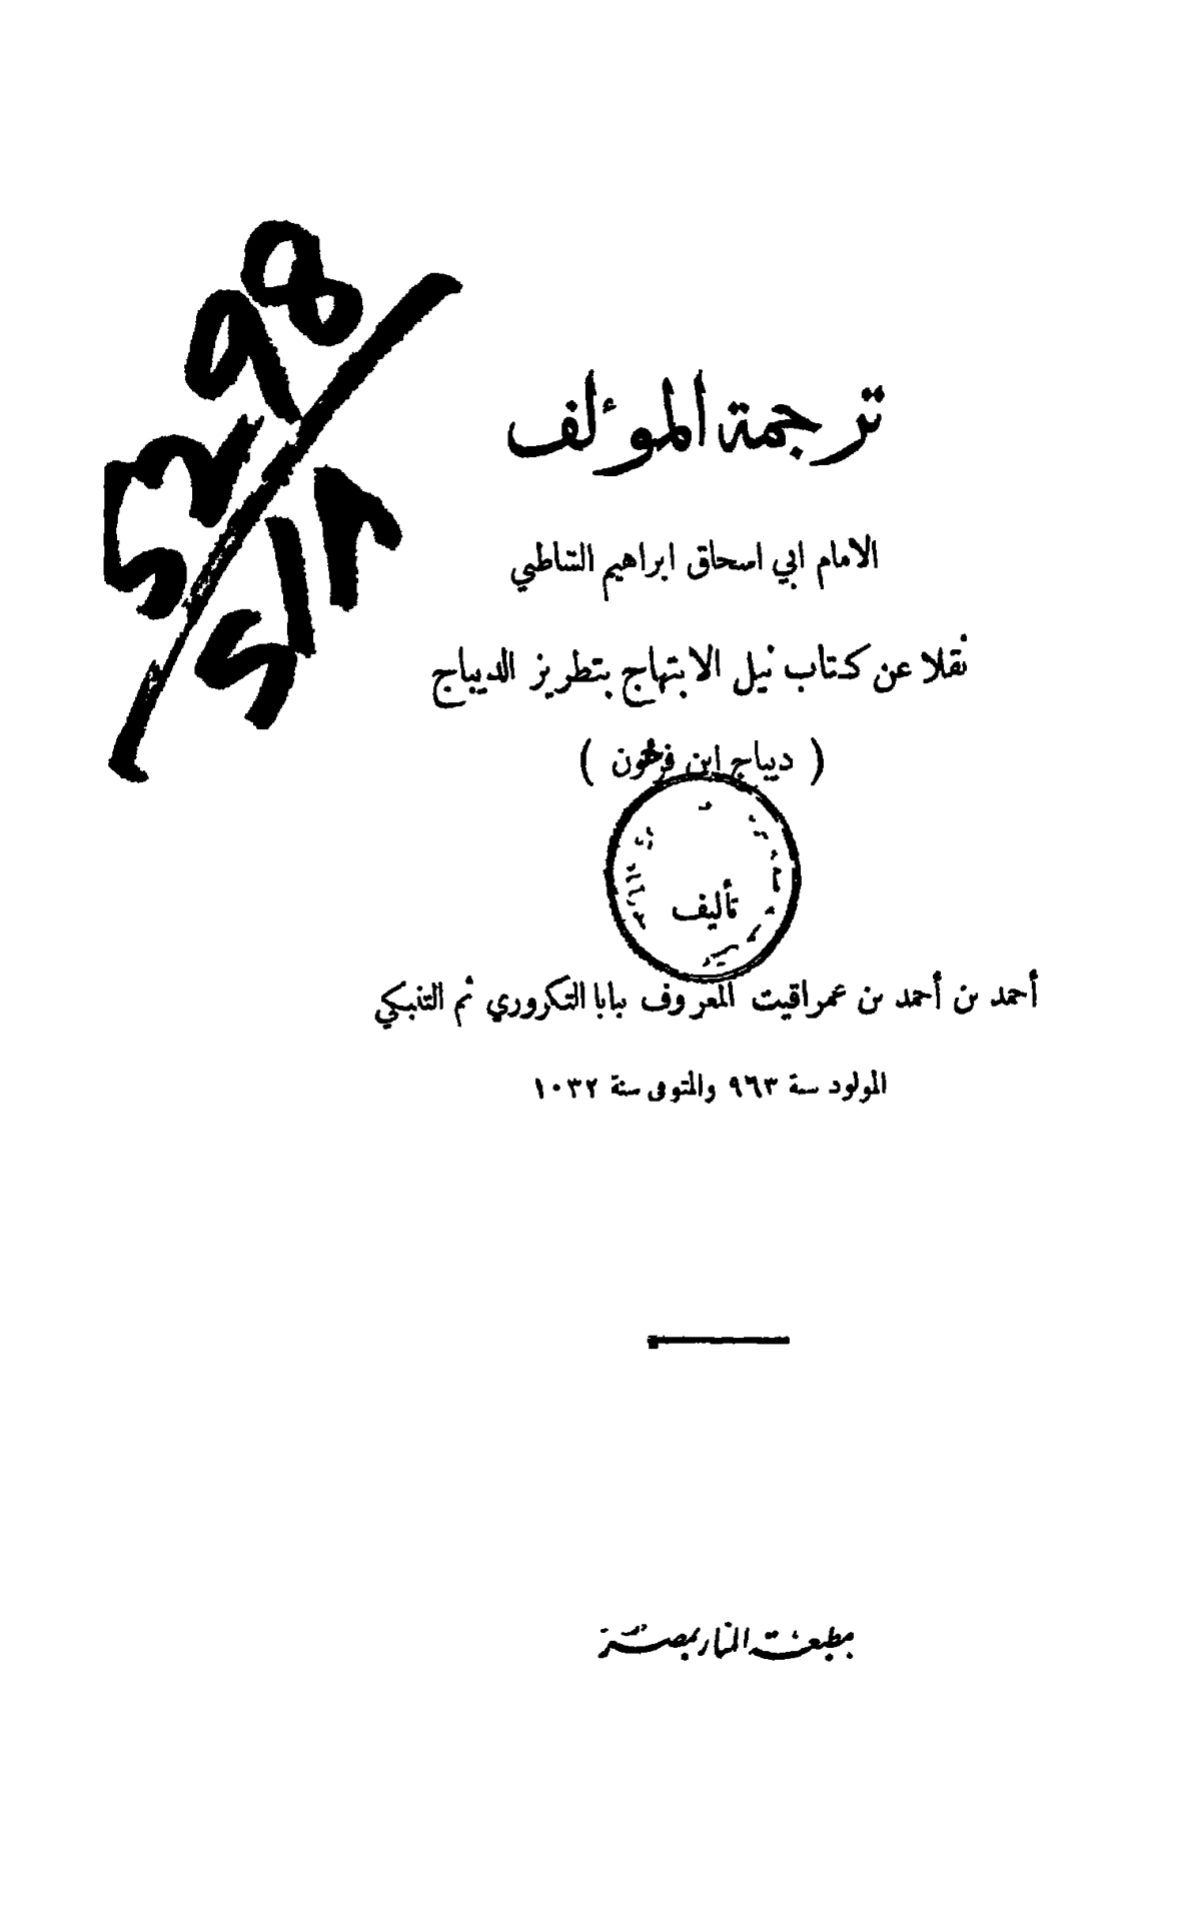 ترجمة المؤلف
الامام ابي اسحاق ابراهيم الشاطبي
نقلا عن كتاب نيل الابتهاج بتطريز الديباج
( ديباج ابن فرحون )
تأليف
أحمد بن أحمد بن عمر اقيت المعروف ببابا التكروري ثم التنبكي
المولود سنة ٩٦٣ والمتوفى سنة ١٠٣٢
بمطبعة المنار بمصر